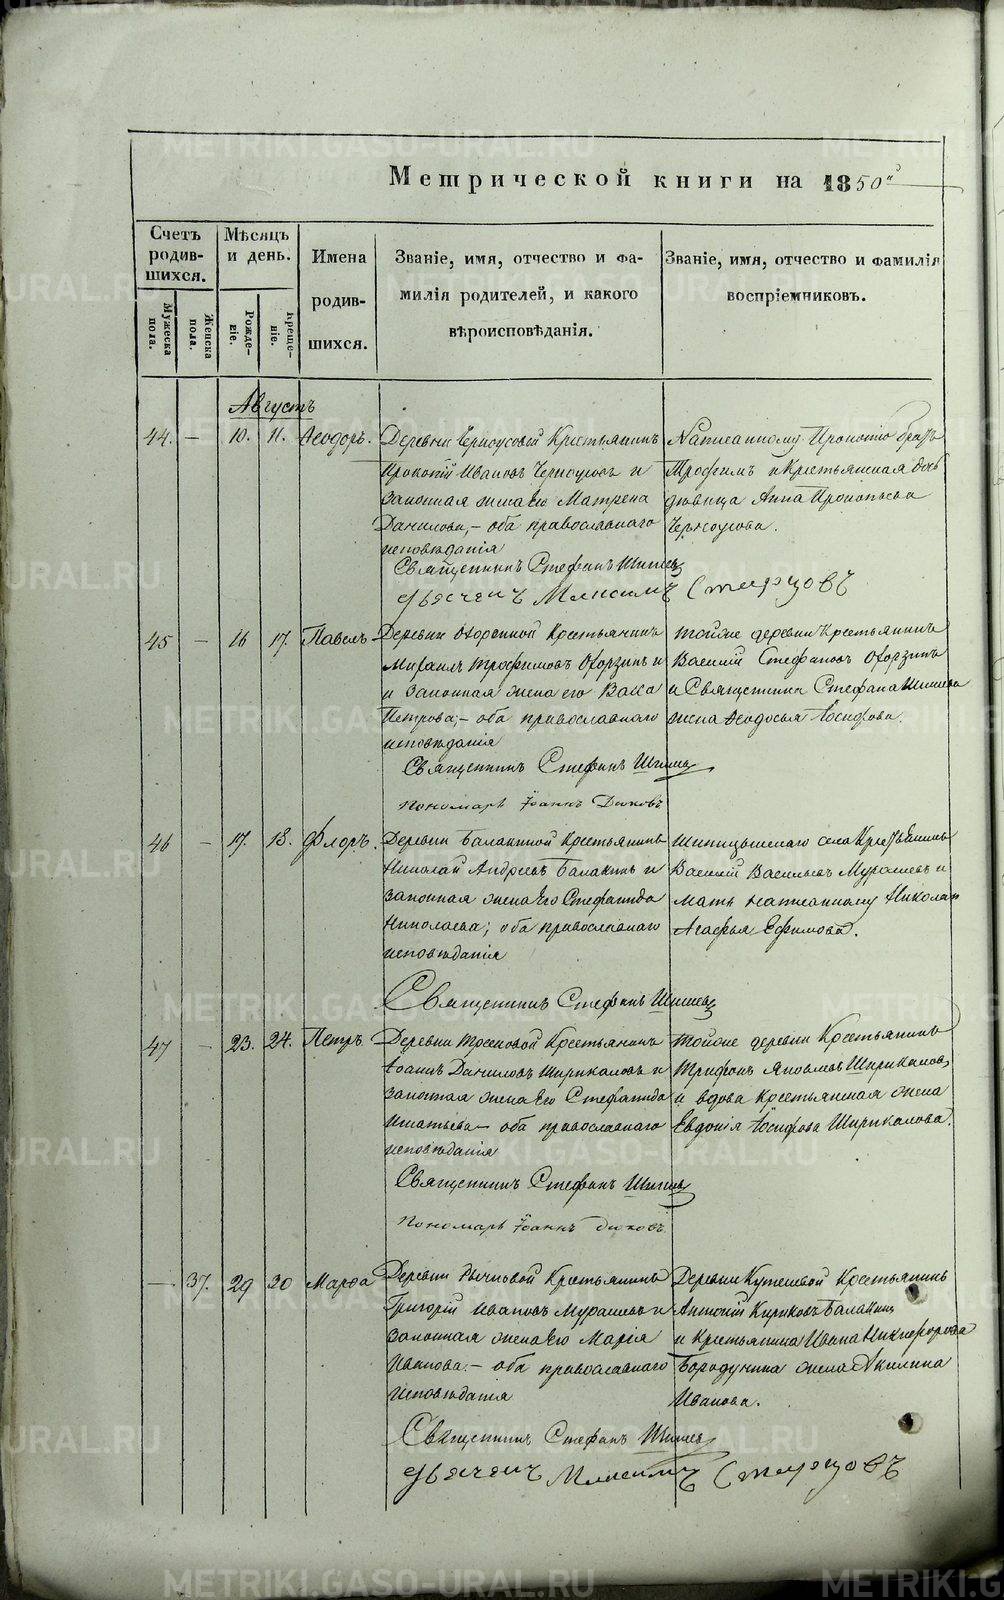 METRIKI.GASO-URAL.RU
Метрической книги на 1850й
Счетъ родив-шихся.
Мужеска пола.
Женска пола.
Мѣсяцъ и день.
Рожде-ніе.
Креще-ніе.
Имена родив-шихся.
Званіе, имя, отчество и фа-
милія родителей, и какого
вѣроисповѣданія.
Званіе, имя, отчество и фамилія
воспріемниковъ.
Августъ
44. — 10. 11. Ѳеодоръ.
Деревни Черноусовой Крестьянинъ
Прокопій Ивановъ Черноусовъ и
законная жена его Матрена
Данилова, – оба православнаго
исповѣданія
Написанному Прокопію братъ
Трофимъ и Крестьянская дочь
дѣвица Анна Прокопьева
Черноусова.
Священникъ Стефанъ Шишевъ
Дьячекъ Максимъ Старцовъ
45 — 16 17. Павелъ
Деревни Крестьянинъ
Михаилъ Трофимовъ и
и законная жена его Васса
Петрова; – оба православнаго
исповѣданія
Тойже деревни Крестьянинъ
Василій Стефановъ
и Священника Стефана Шишева
жена Ѳеодосья Іосифова.
Священникъ Стефанъ Шишевъ
Пономарь Іоаннъ
46 — 17. 18. Флоръ.
Деревни Балакиной Крестьянинъ
Николай Андреевъ Балакинъ и
законная жена Его Стефанида
Николаева; оба православнаго
исповѣданія
села Крестьянинъ
Василій Васильевъ Мурашевъ и
мать написанному Николаю
Агафья Ефимова.
Священникъ Стефанъ Шишевъ
47 — 23. 24. Петръ.
Деревни Крестьянинъ
Іоаннъ Даниловъ Ширикаловъ и
законная жена Его Стефанида
Игнатьева – оба православнаго
исповѣданія
Тойже деревни Крестьянинъ
Трифонъ Яковлевъ Ширикаловъ,
и вдова Крестьянская жена
Евдокія Іосифова Ширикалова.
Священникъ Стефанъ Шишевъ
Пономарь Іоаннъ
— 37. 29 30 Марѳа
Деревни Крестьянинъ
Григорій Ивановъ Мурашевъ и
законная жена Его Марія
Иванова. – оба православнаго
исповѣданія
Деревни Крестьянинъ
Антоній Кириковъ Балакинъ
и Крестьянина Ивана Никифорова
Бородунина жена Акилина
Иванова.
Священникъ Стефанъ Шишевъ
Дьячекъ Максимъ Старцовъ